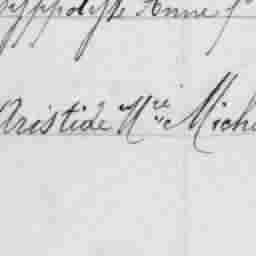 Hyppolyte Anne f
Aristide Mre Miche